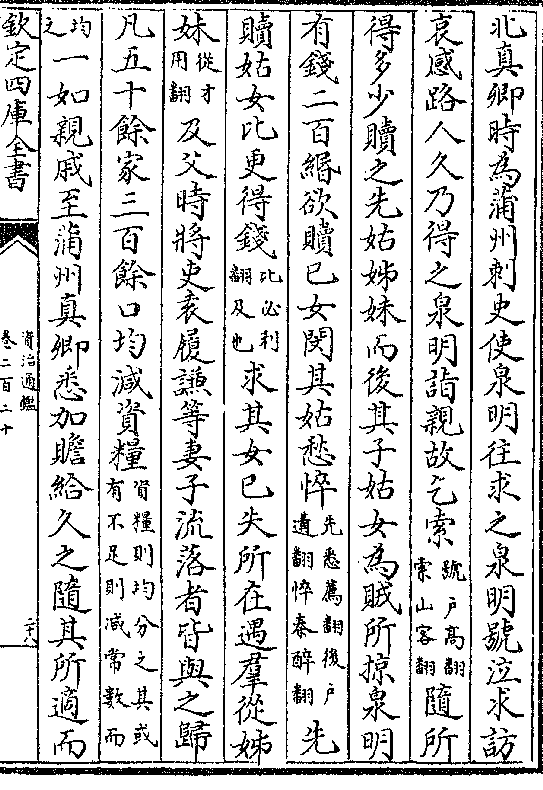 北真卿時為蒲州刺史使泉明往求之泉明號泣求訪
哀感路人久乃得之泉明詣親故乞索號户髙翻索山客翻隨所
得多少贖之先姑姊妹而後其子姑女為賊所掠泉明
有錢二百緡欲贖已女閔其姑愁悴先悉薦翻後户遘翻悴秦醉翻先
贖姑女比更得錢比必利翻及也求其女已失所在遇羣從姊
妹從才用翻及父時將吏袁履謙等妻子流落者皆與之歸
凡五十餘家三百餘口均減資糧資糧則均分之其或有不足則減常數而
均之一如親戚至蒲州真卿悉加贍給久之隨其所適而
欽定四庫全書
資治通鑑
卷二百二十
二十八